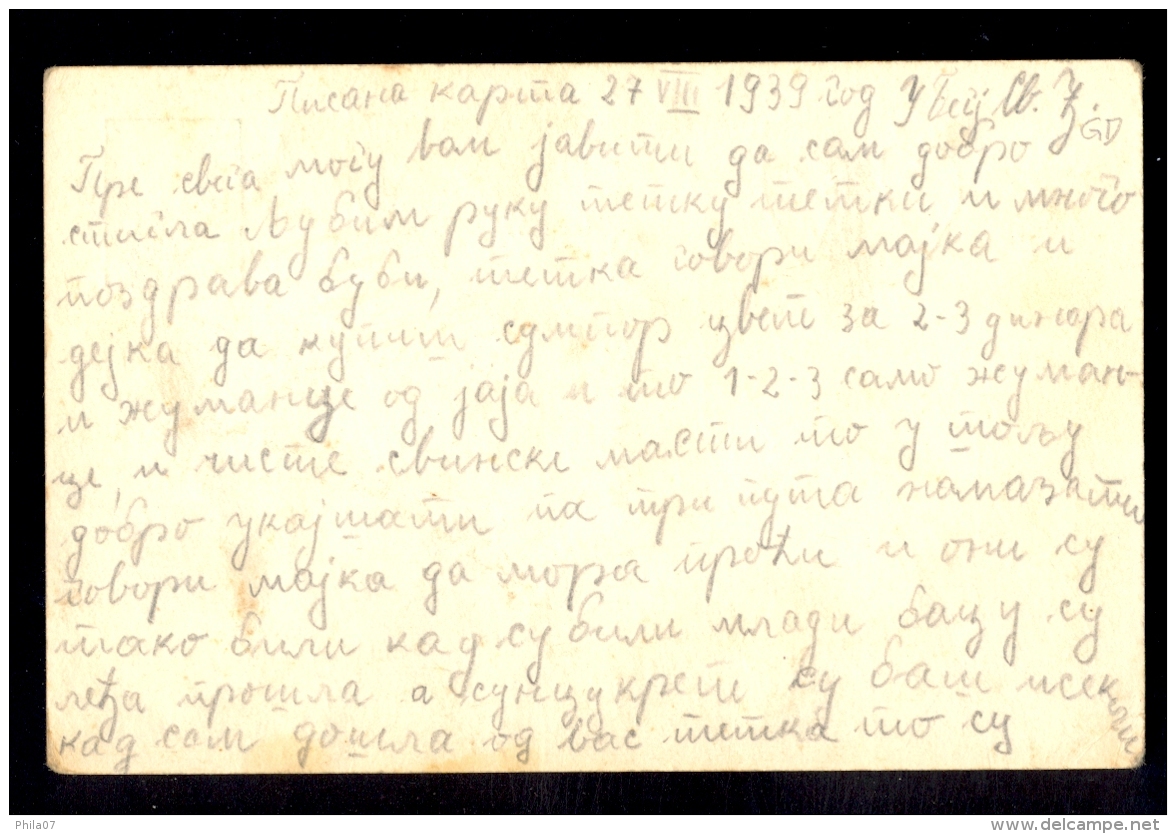 Писана карта 27 VIII 1939 год У
Пре свега могу вам јавити да сам добро
стигла љубим руку тетку тетки и много
поздрава буби, тетка говори мајка и
дејка да купиш сумпор цвет за 2-3 динара
и жуманце од јаја и то 1-2-3 само жуман-
це, и чисте свинске масти то у
добро укајшати па три пута намазати
говори мајка да мора проћи и они су
тако били кад су били млади бацу су
леђа прошла а су баш исекли
кад сам дошла од вас тетка то су
Phila07
delcampe.net